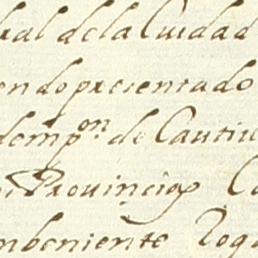 ral dela Ciudad
endo presentado
demp^on. de Cautiu
Prouinçias Ca
nbeniente Roga